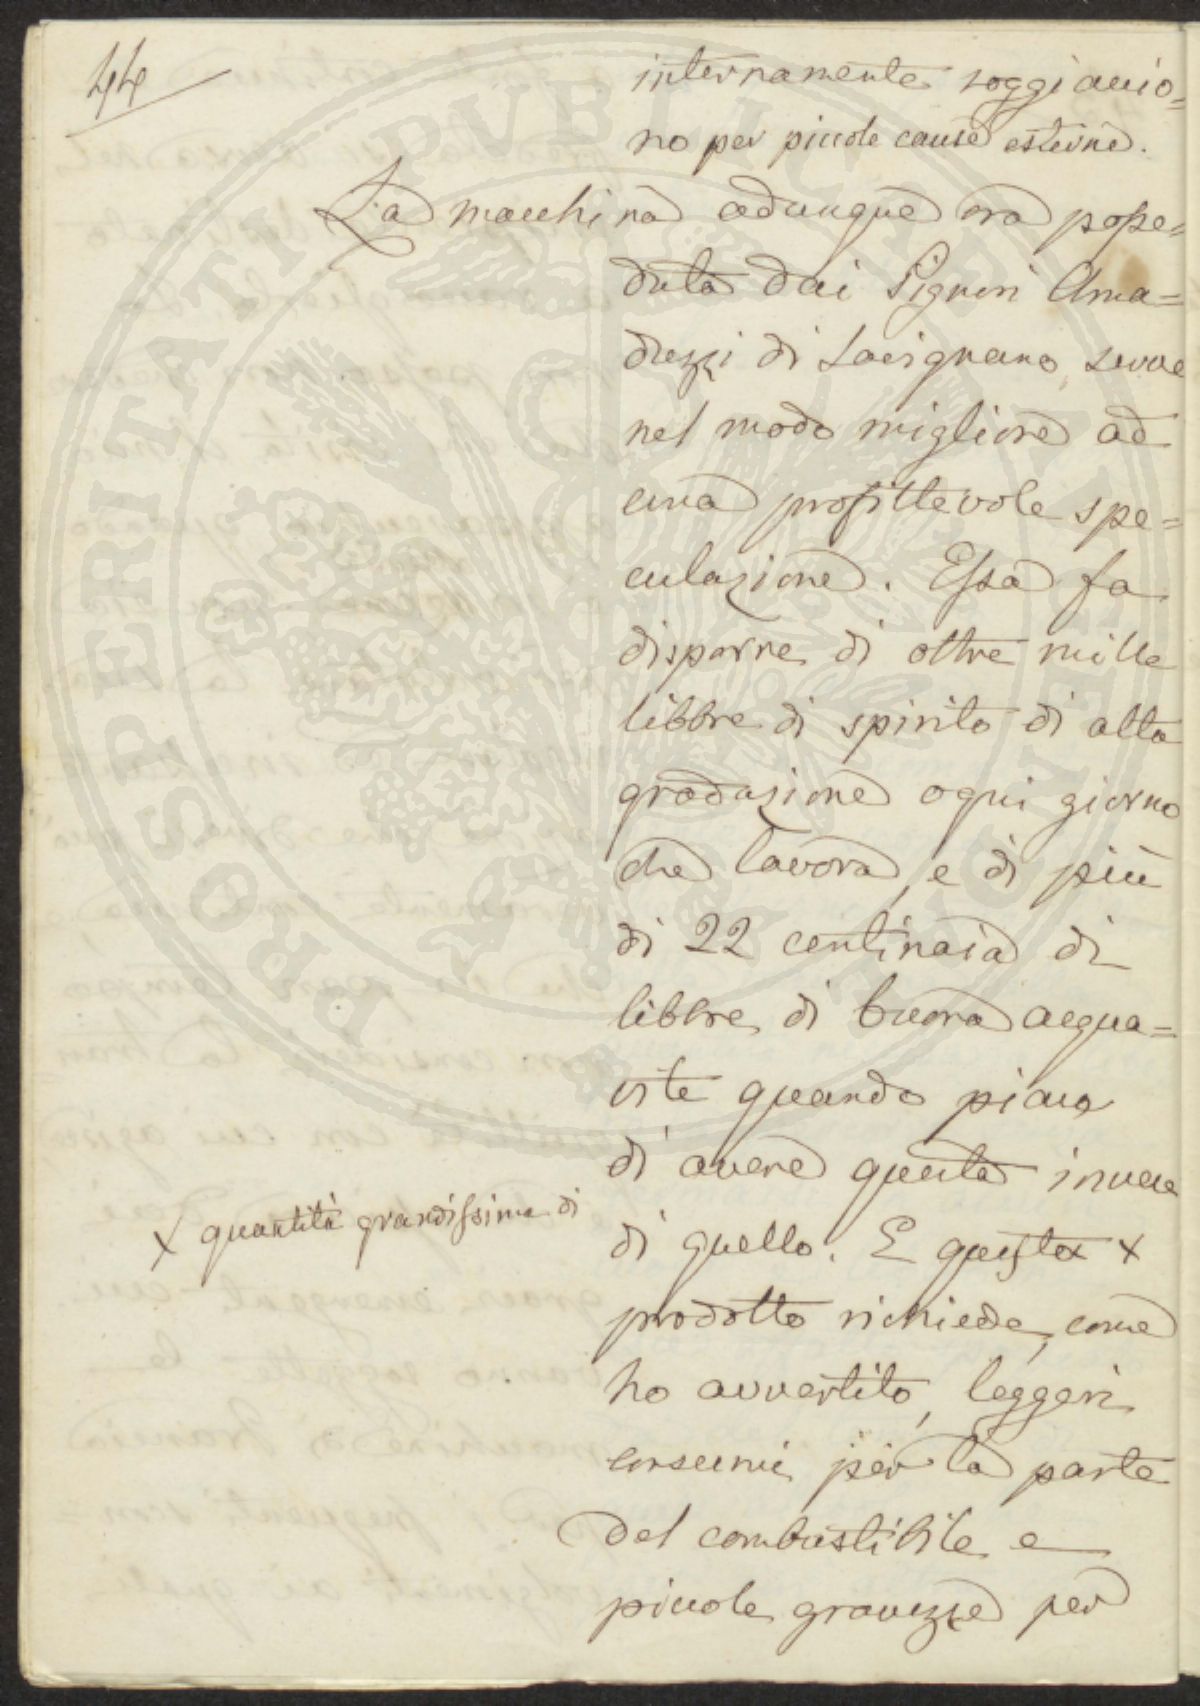 44
internamente soggiacio=
no per picciole cause esterne.
La macchina adunque ora posse=
duta dai Signori Ama=
duzzi di Savignano, serve
nel modo migliore ad
una profittevole spe=
culazione. Essa fa
disporre di oltre mille
libbre di spirito di alta
gradazione ogni giorno
che lavora, e di più
di 22 centinaia di
libbre di buona acqua=
vite quando piace
di avere questa invece
di quello. E questa x
x quantità grandissima di
prodotto richiede, come
ho avvertito, leggeri
consumi per la parte
del combustibile e
picciole gravezze per
PROSPERITATI PVBLICAE AVGENDAE